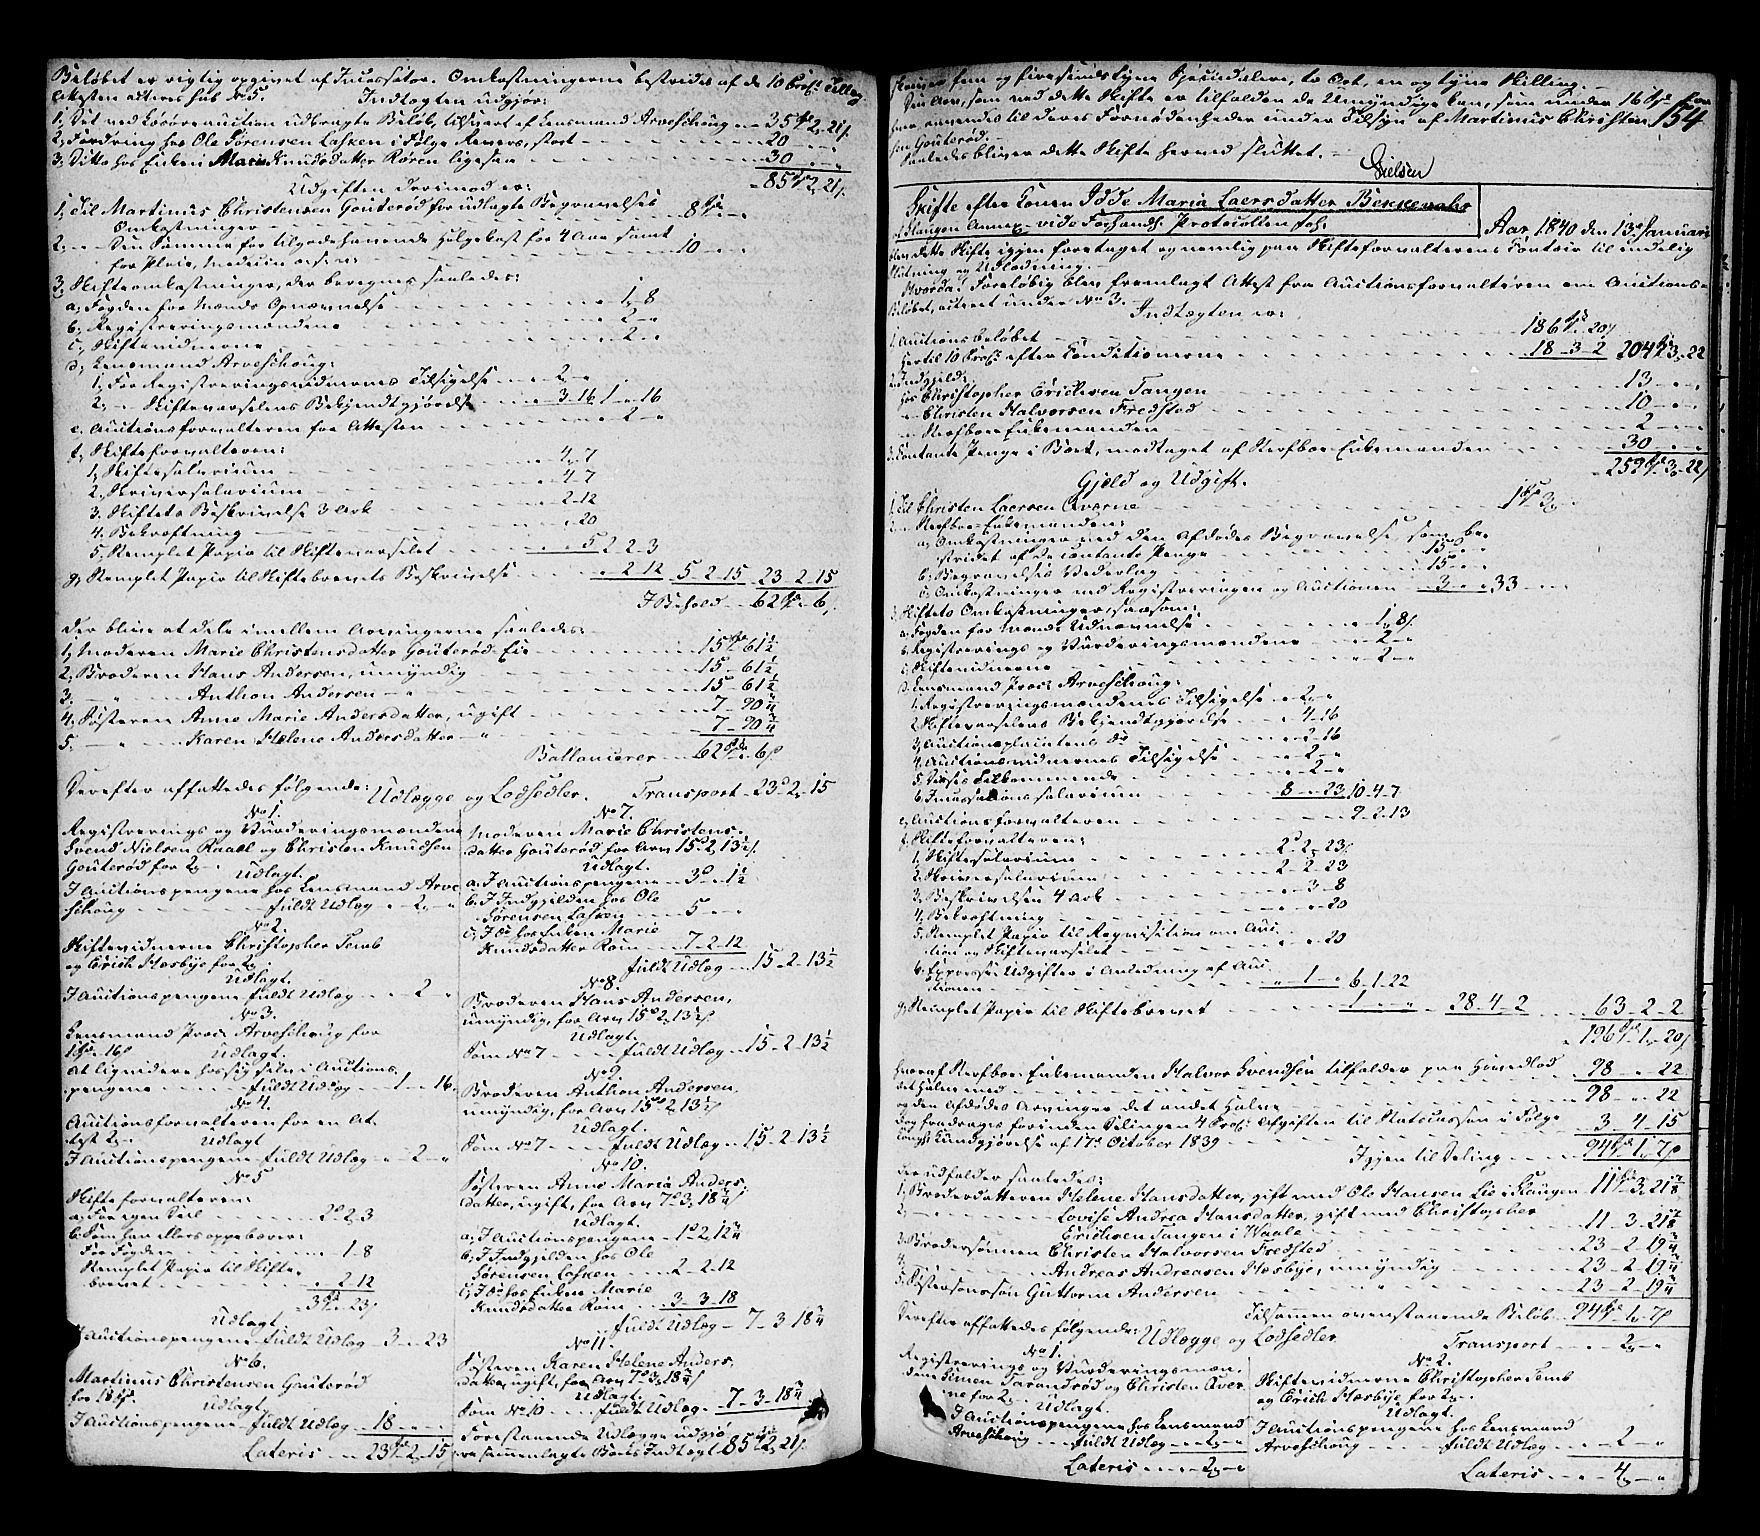 Beløbet er rigtig opgivet af Incassator. Omkostningerne bestrides af de 10 Proc. Tillæg
Attesten acteres sub No 5.
Indtægten udgjør:
1, Det ved Løsøreauction udbragte Beløb tilsvaret af Lensmand Arveschoug 35 2 21
2, Fordring hos Ole Sørensen Lasken i Følge Revers, stor 20
3, Ditto hos Enken Marie Knudsdatter Røren ligesaa 30
85 2 21
Udgiften derimod er:
1, Til Martinus Christensen Gouterød for udlagte Begravelses
Omkostninger 8
2, Den Samme for tilgodehavende Følgekost for 4 Aar samt
for Pleie, Medicin 10
3, Skifteomkostninger, der beregnes saaledes:
a, Fogden for Mænds Opnævnelse 1 8
b, Registreringsmændene 2
c, Skiftevidnerne 2
d, Lensmand Arveschoug:
1, For Registreringsvidnernes Tilsigelse 2
2, Skiftevarselens Bekjendtgjørelse 3 16 1 16
e, Auctionsforvalteren for Attesten 2
f, Skifteforvalteren:
1, Skiftesalarium 4 7
2, Skriversalarium 4 7
3. Skiftets Beskrivelse 3 Ark 2 12
4. Bekræftning 20
5, Stemplet Papir til Skiftevarselet 5 2 2 3
g, Stemplet Papir til Skiftebrevets Beskrivelse 2 12 5 2 15 23 2 15
I Behold 62 6
der bliver at dele imellem Arvingerne saaledes:
1, Moderen Marie Christensdatter Gouterød Eie 15 61½
2, Broderen Hans Andersen, umyndig 15 61½
3, Anthon Andersen 15 61½
4, Søsteren Anne Marie Andersdatter, ugift 7 90
5, Karen Helene Andersdatter 7 90
Ballancerer 62 6
Derefter affattedes følgende: Udlægge og Lodsedler.
No 1.
Registrerings og Vurderingsmændene
Svend Nielsen Raael og Christen Knudsen
Gouterød for 2
Udlagt.
I Auctionspengene hos Lensmand Arve
schoug fuldt Udlæg 2
No 2.
Skiftevidnerne Christopher Tomb
og Erich Hæsbye for 2
Udlagt.
I Auctionspengene fuldt Udlæg 2
No 3.
Lensmand Proc. Arveschoug for
1 16
Udlagt.
At liqvidere hos sig selv i Auctions
pengene fuldt Udlæg 1 16
No 4.
Auctionsforvalteren for en At
test 2
Udlagt
I Auctionspengene fuldt Udlæg 2
No 5
Skifteforvalteren:
a, For egen Deel 2 2 3
b, Som han ellers oppebærer:
For Fogden 1 8
Stemplet Papir til Skifte
brevet 2 12
3 23
Udlagt
I Auctionspengene fuldt Udlæg 3 23
No 6.
Martinus Christensen Gouterød
for 18
Udlagt
I Auctionspengene fuldt Udlæg 18
Lateris 23 2 15
Transport 23 2 15
No 7.
Moderen Marie Christens
datter Gouterød for Arv 15 2 13½
Udlagt.
a, I Auctionspengene 3 1½
b, I Indgjælden hos Ole
Sørensen Lasken 5
c, I Do hos Enken Marie
Knudsdatter Røen 7 2 12
fuldt Udlæg 15 2 13½
No 8.
Broderen Hans Andersen,
umyndig, for Arv 15 2 13½
Udlagt.
Som No 7 fuldt Udlæg 15 2 13½
No 9.
Broderen Anthon Andersen,
umyndig, for Arv 15 2 13½
Udlagt.
Som No 7 fuldt Udlæg 15 2 13½
No 10.
Søsteren Anne Maria Anders
datter, ugift, for Arv 7 3 18
Udlagt.
a, I Auctionspengene 1 2 12
b, I Indgjælden hos Ole
Sørensen Lasken 2 2 12
c, I Do hos Enken Marie
Knudsdatter Røen 3 3 18
fuldt Udlæg 7 3 18
No 11.
Søsteren Karen Helene Anders
datter, ugift, for Arv 7 3 18
Udlagt.
Som No 10 fuldt Udlæg 7 3 18
Forestaaende Udlægge udgjø
re sammenlagte Boets Indtægt 85 2 21
skriver fem og firesindstyve Speciedaler, to Ort, en og tyve Skilling.
Den Arv, som ved dette Skifte er tilfalden de Umyndige kan, som under 16 for
hver anvendes til deres Fornødenheder under Tilsyn af Martinus Christen
sen Gouterød.
154
Saaledes bliver dette Skifte hermed sluttet.
Nielsen
Skifte efter Konen Idde Maria Laersdatter Bekkevahr
i Slangen Annex. vide Forhandl. Protocollen fol:
Aar 1840 den 13de Januarii
blev dette Skifte igjen foretaget og nemlig paa Skifteforvalterens Contoir til endelig
Slutning og Udlodning.
Hvorda: Foreløbig blev fremlagt Attest fra Auctionsforvalteren om Auctions
Beløbet, acteret under No 3.
Indtægten er:
1, Auctionsbeløbet 186 20
hertil 10 Proc. efter Conditionerne 18 3 2 204 3 22
2, Indgjeld:
hos Christopher Erichsen Tangen 13
Christen Halvorsen Fredstad 10
Sterfboe Enkemanden 2
3, Contante Penge i Boet, modtaget af Sterfboe Enkemanden 30
259 3 22
Gjæld og Udgift.
1, Til Christen Laersen Qværne 1 3
2, Sterfboe Enkemanden:
a, Omkostninger ved den Afdødes Begravelse som be
stridet af de contante Penge 15
b, Begravelses Vederlag 15
c, Omkostninger ved Registreringen og Auctionen 3 33
3, Skiftets Omkostninger, saasom:
a, Fogden for Mænds Udnævnelse 1 8
b, Registrerings og Vurderingsmændene 2
c, Skiftevidnerne 2
d, Lensmand Proc. Arveschoug:
1, Registreringsmændenes Tilsigelse 2
2, Skiftevarselens Bekjendtgjørelse 4 16
3, Auctionsplacatens Do 2 16
4, Auctionsvidnernes Tilsigelse 2
5, Deres Tilkommende 2
6, Incassations salarium 8 23 10 4 7
e, Auctionsforvalteren 9 2 13
f, Skifteforvalteren:
1, Skiftesalarium 2 2 23
2, Skriversalarium 2 2 23
3, Beskrivelsen 4 Ark 3 8
4, Bekræftning 20
5, Stemplet Papir til Reqvisition om Auc
tion og Skiftevarselet 20
6, Expresse Udgifter i Anledning af Auc
tionen 1 6 1 22
g, Stemplet Papir til Skiftebrevet 1 28 4 2 63 2 2
196 1 20
hvoraf Sterfboe Enkemanden Halvor Svendsen tilfalder paa Hovedlod
det Halve med 98 22
og den Afdødes Arvinger det andet Halve 98 22
Dog fradrages forinden Delingen 4 Proc. Afgiften til Statscassen i Følge
Kundgjørelse af 17de October 1839 3 4 15
Igjen til Deling 94 1 7
der udfalder saaledes:
1, Broderdatteren Helene Hansdatter, gift med Ole Hansen Lie i Slangen 11 3 21
2, Lovise Andrea Hansdatter, gift med Christopher
Erichsen Tangen i Waale 11 3 21
3, Brodersønnen Christen Halvorsen Fredsted 23 2 19
4, Andreas Andreasen Hæsbye, umyndig 23 2 19
5, Søstersønsøn Guttorm Andersen 23 2 19
Tilsammen ovenstaaende Beløb 94 1 7
Derefter affattedes følgende: Udlægge og Lodsedler
No 1.
Registrerings og Vurderingsmæn
dene Simen Tarandrød og Christen Qver
ne for 2
Udlagt.
I Auctionspengene hos Lensmand
Arveschoug fuldt Udlæg 2
Lateris 2
Transport 2
No 2.
Skiftevidnerne Christopher Tomb
og Erich Hæsbye for 2
Udlagt.
I Auctionspengene hos Lensmand
Arveschoug fuldt Udlæg 2
Lateris 4